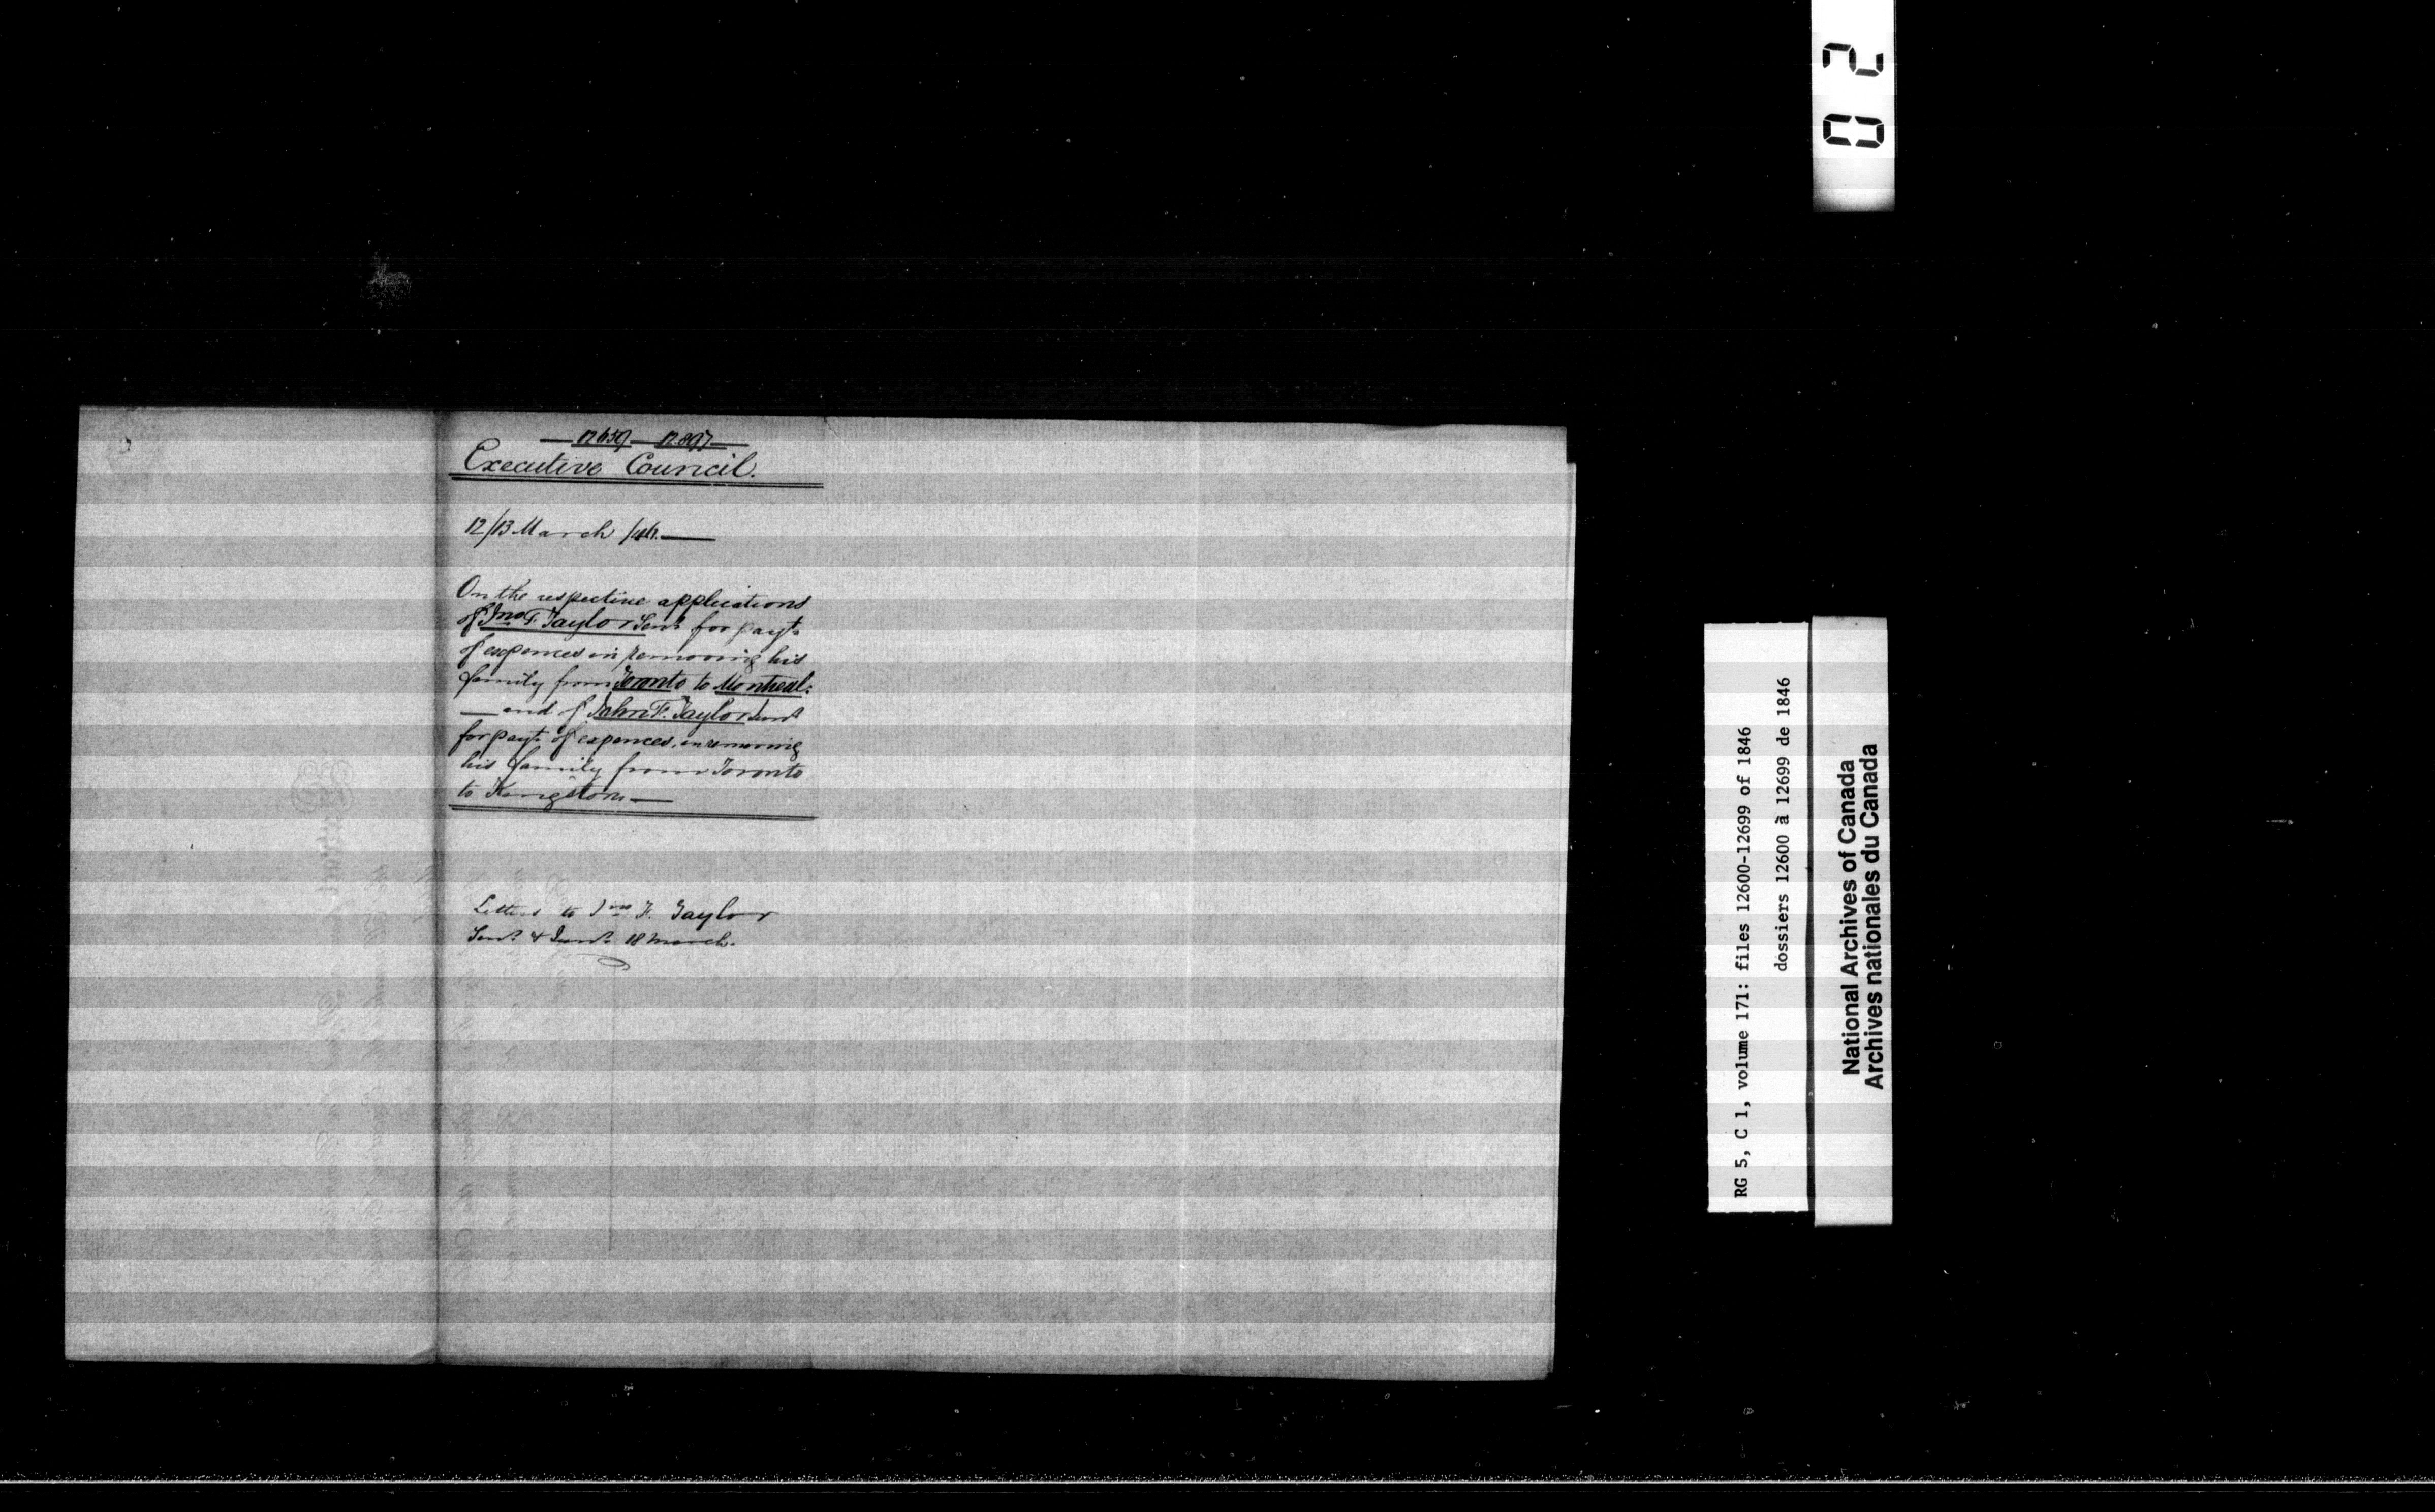 12659 12.897
Executive Council.
12/13 March /46.
On the respective applications
of Jno F. Taylor Senr for payt
of expences in removing his
family from Toronto to Montreal:
— and of John F. Taylor Junr
for payt of expences, in removing
his family from Toronto
to Kingston —
Letters to Jno F. Taylor
Senr & Junr 18 March.
02
RG 5, C 1, volume 171: files 12600-12699 of 1846
dossiers 12600 à 12699 de 1846
National Archives of Canada
Archives nationales du Canada